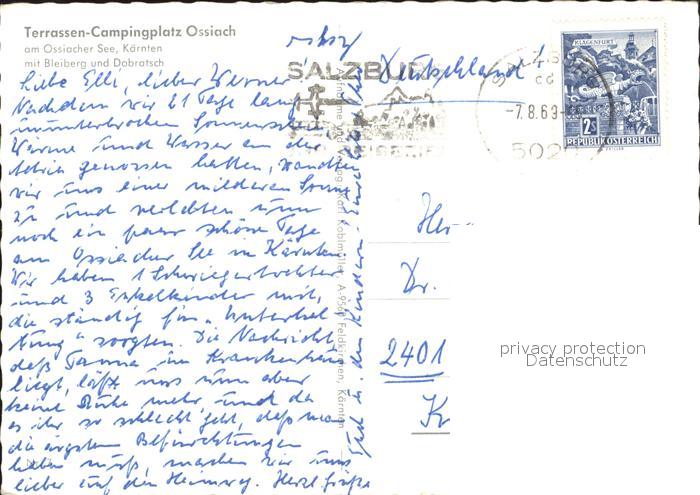 Terrassen-Campingplatz Ossiach
am Ossiacher See, Kärnten
mit Bleiberg und Dobratsch
Liebe Elli, lieber Werner!
Nachdem wir 21 Tage lang
ununterbrochen Sonnenschein
Wärme und Wasser an der
Adria genossen hatten, wandten
wir uns einer milderen Sonne
zu und verlebten nun
noch ein paar schöne Tage
am Ossiacher See in Kärnten.
Wir haben 1 Schwiegertochter
und 3 Enkelkinder mit,
die ständig für "Unterhal
tung" sorgten. Die Nachricht,
daß Tanna im Krankenhaus
liegt, läßt uns nun aber
keine Ruhe mehr, und da
es ihr so schlecht geht, daß man
die ärgsten Befürchtungen
haben muß, machen wir uns
lieber auf den Heimweg. Herzl. Grüße
Deutschland
SALZBURG
-7.8.69-
502
KLAGENFURT
2S
REPUBLIK ÖSTERREICH
Her
Dr.
2401
Kr
privacy protection
Datenschutz
Karl Koblmüller, A-9560 Feldkirchen, Kärnten